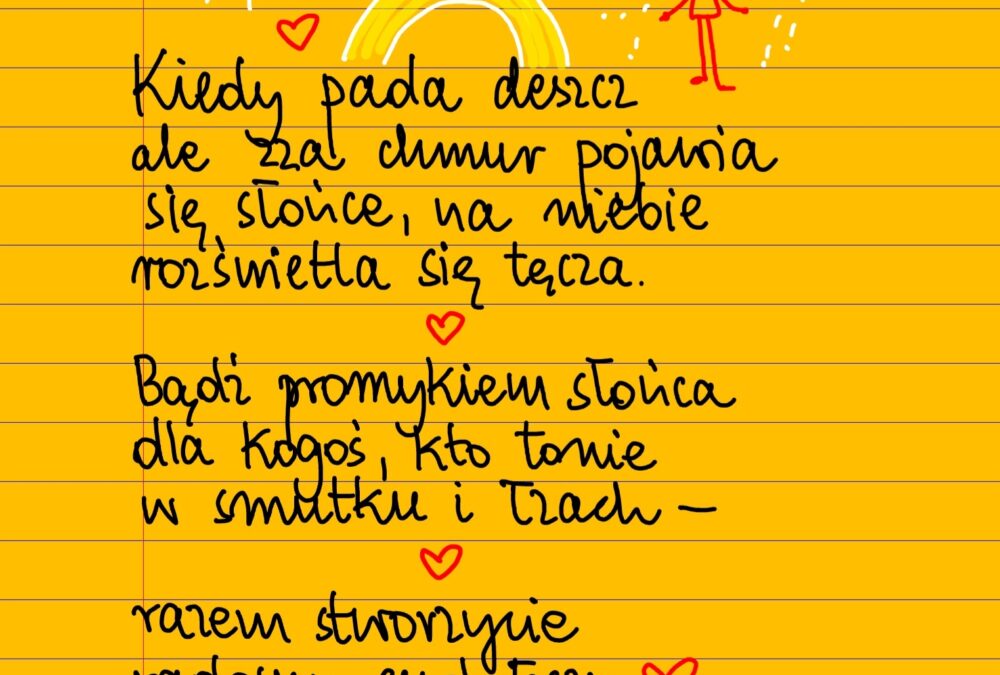 Kiedy pada deszcz
ale zza chmur pojawia
się słońce, na niebie
rozświetla się tęcza.
Bądź promykiem słońca
dla kogoś, kto tonie
w smutku i łzach –
razem stworzycie